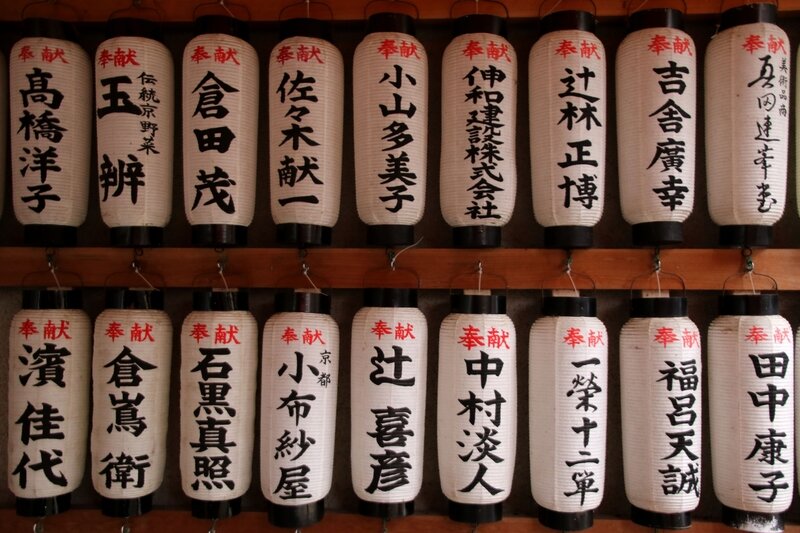 奉献
髙橋洋子
奉献
伝統京野菜
玉辨
奉献
倉田茂
奉献
佐々木献一
奉献
小山多美子
奉献
伸和建設株式会社
奉献
辻林正博
奉献
吉舎廣幸
奉献
美術品商
真田連峯堂
奉献
濱佳代
奉献
倉嶌衛
奉献
石黒真照
奉献
京都
小布紗屋
奉献
辻喜彦
奉献
中村淡人
奉献
一榮十二単
奉献
福呂天誠
奉献
田中康子